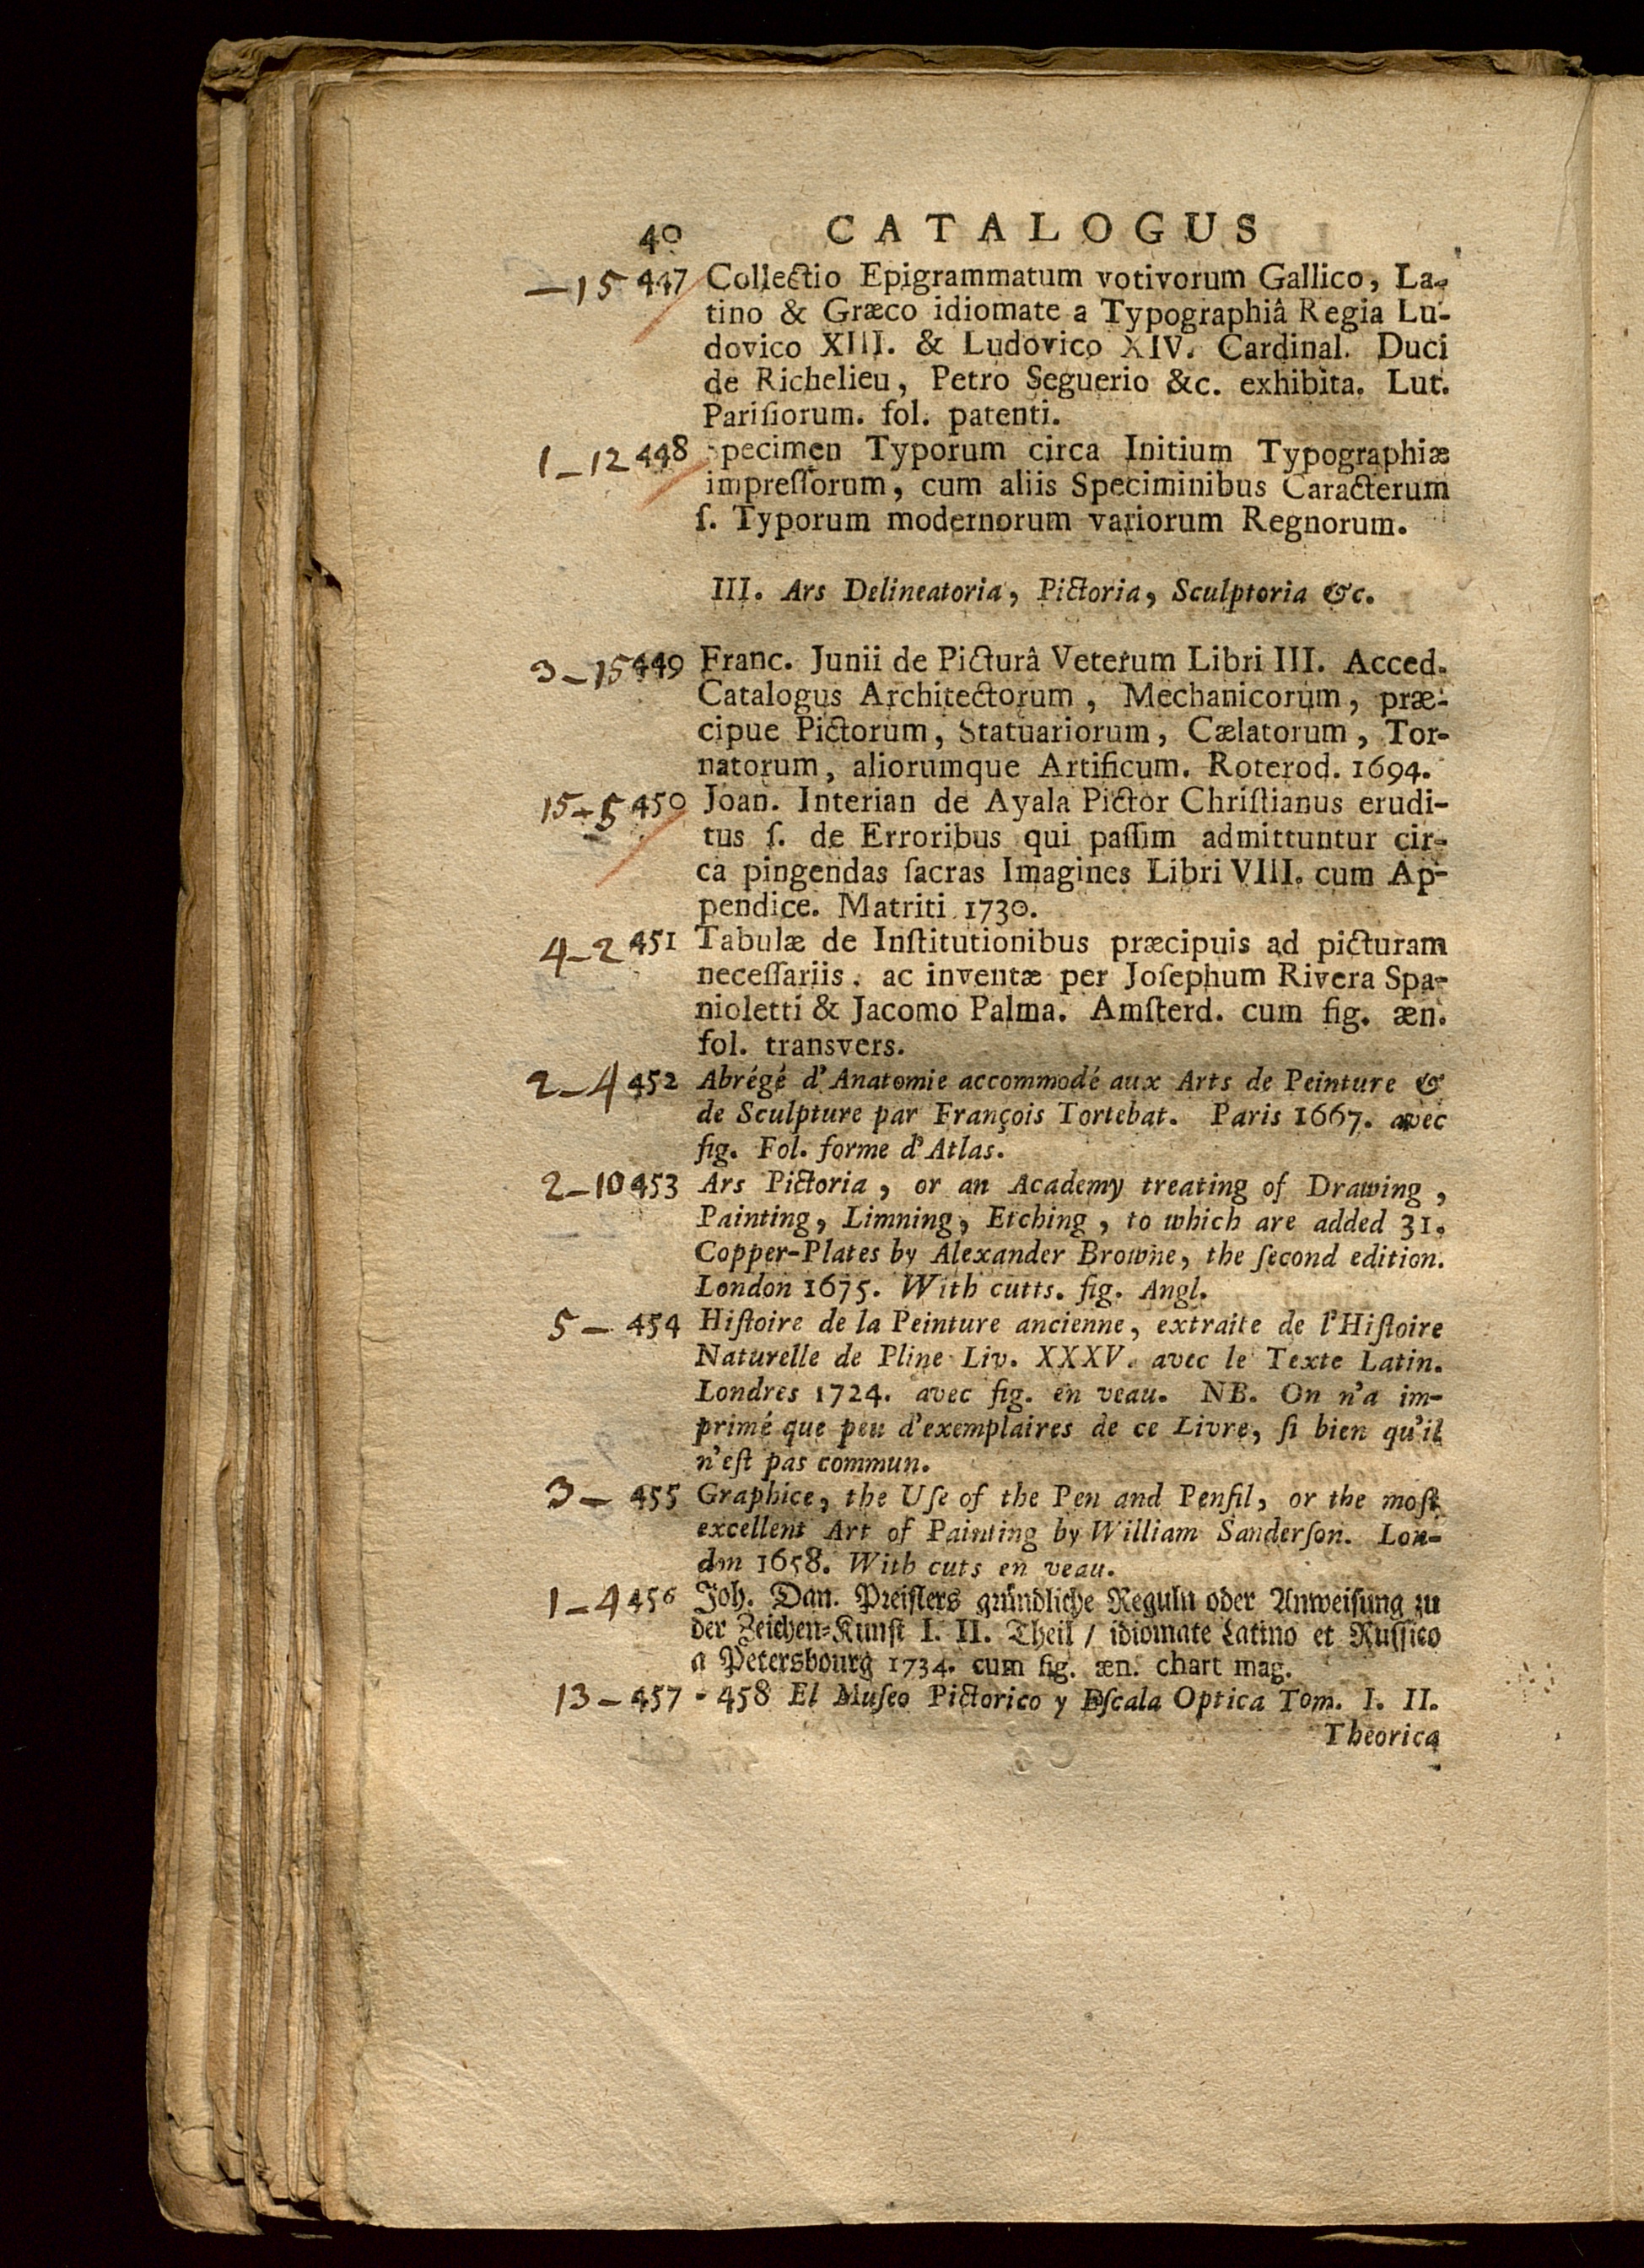 40 CATALOGUS
—15 447 Collectio Epigrammatum votivorum Gallico, La-
tino & Græco idiomate a Typographiâ Regia Lu-
dovico XIII. & Ludovico XIV. Cardinal. Duci
de Richelieu, Petro Seguerio &c. exhibita. Lut.
Pariſiorum. fol. patenti.
1—12 448 Specimen Typorum circa Initium Typographiæ
impreſſorum, cum aliis Speciminibus Caracterum
ſ. Typorum modernorum variorum Regnorum.
III. Ars Delineatoria, Pictoria, Sculptoria &c.
3—15 449 Franc. Junii de Picturâ Veterum Libri III. Acced.
Catalogus Architectorum, Mechanicorum, præ-
cipue Pictorum, Statuariorum, Cælatorum, Tor-
natorum, aliorumque Artificum. Roterod. 1694.
15—5 450 Joan. Interian de Ayala Pictor Chriſtianus erudi-
tus ſ. de Erroribus qui paſſim admittuntur cir-
ca pingendas ſacras Imagines Libri VIII. cum Ap-
pendice. Matriti 1730.
4—2 451 Tabulæ de Inſtitutionibus præcipuis ad picturam
neceſſariis. ac inventæ per Joſephum Rivera Spa-
nioletti & Jacomo Palma. Amſterd. cum fig. æn.
fol. transvers.
2—4 452 Abrégé d'Anatomie accommodé aux Arts de Peinture &
de Sculpture par François Tortebat. Paris 1667. avec
fig. Fol. forme d'Atlas.
2—10 453 Ars Pictoria, or an Academy treating of Drawing,
Painting, Limning, Etching, to which are added 31.
Copper-Plates by Alexander Browne, the ſecond edition.
London 1675. With cutts. fig. Angl.
5— 454 Hiſtoire de la Peinture ancienne, extraite de l'Hiſtoire
Naturelle de Pline Liv. XXXV. avec le Texte Latin.
Londres 1724. avec fig. en veau. NB. On n'a im-
primé que peu d'exemplaires de ce Livre, ſi bien qu'il
n'eſt pas commun.
3— 455 Graphice, the Uſe of the Pen and Penſil, or the moſt
excellent Art of Painting by William Sanderſon. Lon-
don 1658. With cuts en veau.
1—4 456 Joh. Dan. Preiſlers gründliche Reguln oder Anweiſung zu
der Zeichen-Kunſt I. II. Theil / idiomate Latino et Ruſſico
a Petersbourg 1734. cum fig. æn. chart mag.
13— 457 - 458 El Muſeo Pictorico y Eſcala Optica Tom. I. II.
Theorica